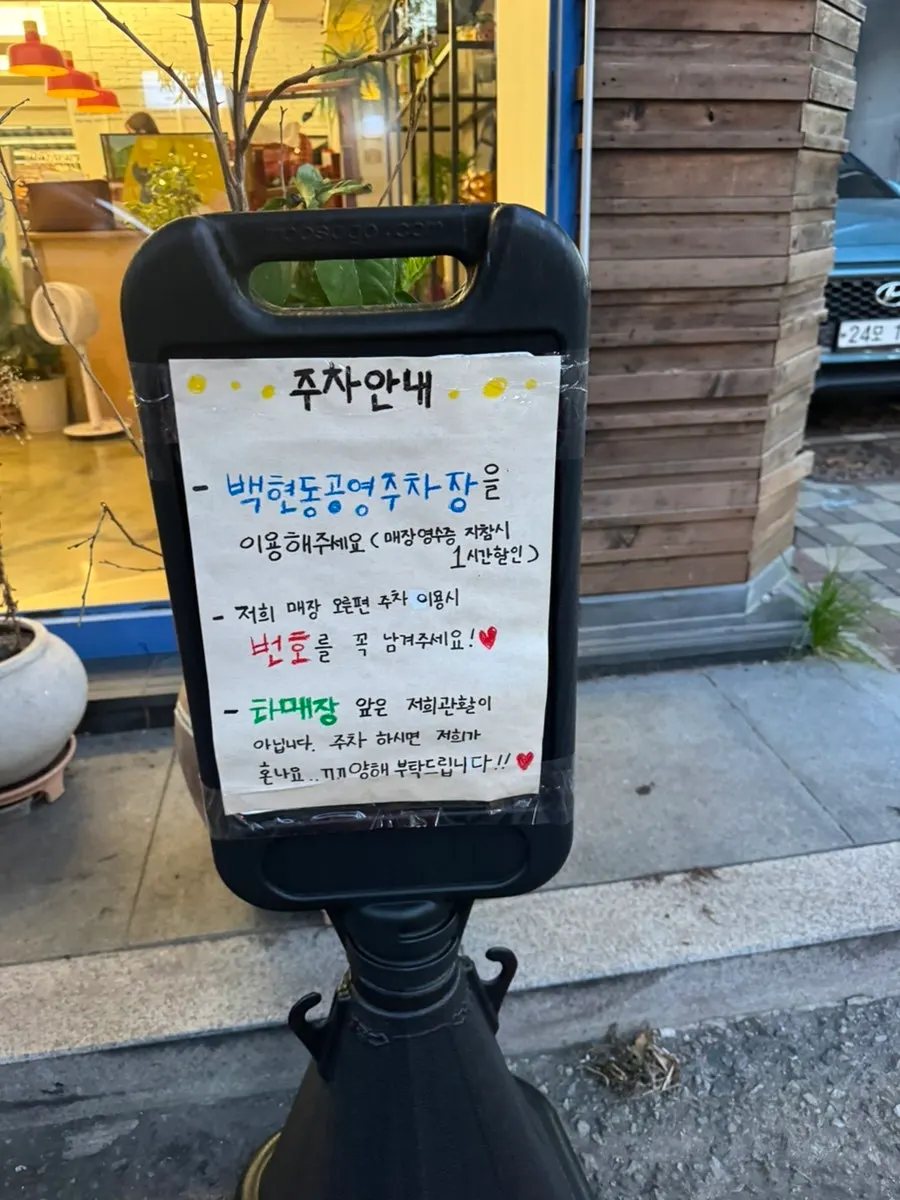 주차안내
- 백현동공영주차장을
이용해주세요 (매장영수증 지참시
1시간할인)
- 저희 매장 오른편 주차 이용시
번호를 꼭 남겨주세요!♥
- 타매장 앞은 저희관할이
아닙니다. 주차 하시면 저희가
혼나요..ㄲㄲ양해 부탁드립니다!!♥
24모 1